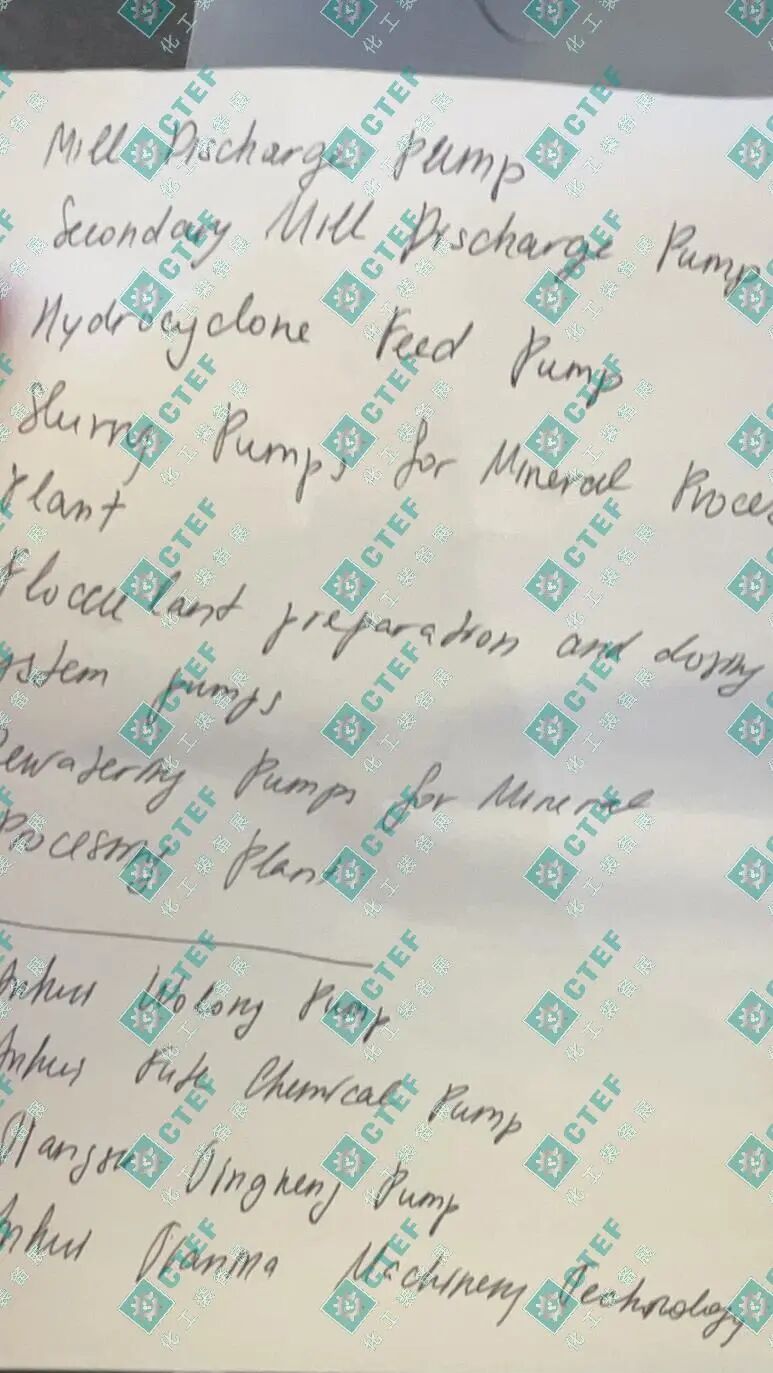 Mill Discharge Pump
Secondary Mill Discharge Pump
Hydrocyclone Feed Pump
Slurry Pumps for Mineral Proces
Plant
Flocculant preparation and dosing
ystem pumps
ewatering Pumps for Mineral
Processing Plant
Anhui Wolong Pump
Anhui Chemical Pump
Jiangsu Dingheng Pump
Anhui Tianma Machinery Technology
CTEF
化工装备展